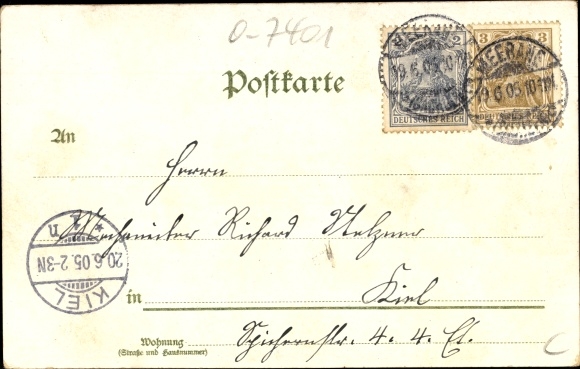 0-7401
2
3
DEUTSCHES REICH
DEUTSCHES REICH
MEERANE
19.6.05.10-11
MEERANE
19.6.05.10-11
Postkarte
An
Herrn
Mechaniker Richard Metzner
in Kiel
Wohnung Spichernstr. 4. 4. Et.
(Straße und Hausnummer)
KIEL
20.6.05.2-3N